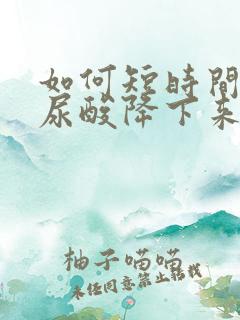 如何短時間
尿酸降下來
柚子喵喵
未经同意禁止转载